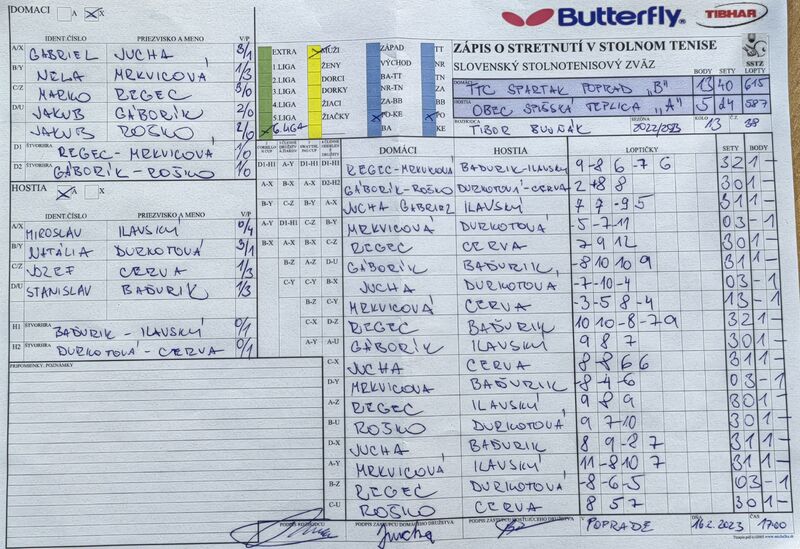 DOMACI A X
Butterfly TIBHAR
ZÁPIS O STRETNUTÍ V STOLNOM TENISE
SLOVENSKÝ STOLNOTENISOVÝ ZVÄZ
SSTZ
IDENT.ČÍSLO PRIEZVISKO A MENO V/P
A/X GABRIEL JUCHA 3/1
B/Y NELA MRKVICOVÁ 1/3
C/Z MARKO REGEC 3/0
D/U JAKUB GÁBORÍK 2/0
JAKUB ROŠKO 2/0
D1 ŠTVORHRA REGEC-MRKVICOVÁ 1/0
D2 ŠTVORHRA GÁBORÍK-ROŠKO 1/0
EXTRA
1.LIGA
2.LIGA
3.LIGA
4.LIGA
5.LIGA
6.LIGA
MUŽI
ŽENY
DORCI
DORKY
ŽIACI
ŽIAČKY
ZÁPAD
VÝCHOD
BA-TT
NR-TN
ZA-BB
PO-KE
TT
TN
NR
ZA
BB
PO
BODY SETY LOPTY
DOMÁCI TTC SPARTAK POPRAD "B" 13 40 615
HOSTIA OBEC SPIŠSKÁ TEPLICA "A" 5 24 587
ROZHODCA TIBOR SEZÓNA 2022/2023 KOLO 13 Č.Z. 38
HOSTIA X
IDENT.ČÍSLO PRIEZVISKO A MENO V/P
A/X MIROSLAV ILAVSKÝ 0/4
B/Y NATÁLIA DURKOTOVÁ 3/1
C/Z JOZEF CERVA 1/3
D/U STANISLAV BAĎURIK 1/3
H1 ŠTVORHRA BAĎURIK - ILAVSKÝ 0/1
H2 ŠTVORHRA DURKOTOVÁ - CERVA 0/1
PRIPOMIENKY, POZNÁMKY
DOMÁCI HOSTIA LOPTIČKY SETY BODY
D1-H1 A-Y REGEC-MRKVICOVÁ BAĎURIK-ILAVSKÝ 9 -8 6 -7 6 3 2 1 -
A-X B-X D2-H2 GÁBORÍK-ROŠKO DURKOTOVÁ-CERVA 2 8 8 3 0 1 -
B-Y C-Z A-Y B-Y JUCHA GABRIEL ILAVSKÝ 7 7 -9 5 3 1 1 -
A-Y D1-H1 C-Z A-X MRKVICOVÁ DURKOTOVÁ -5 -7 -11 0 3 - 1
B-X A-X B-X C-Z REGEC CERVA 7 9 12 3 0 1 -
B-Z A-Z D-U GÁBORÍK BAĎURIK -8 10 10 9 3 1 1 -
C-Y C-Y B-X JUCHA DURKOTOVÁ -7 -10 -4 0 3 - 1
B-Z C-Y MRKVICOVÁ CERVA -3 -5 8 -4 1 3 - 1
C-X D-Z REGEC BAĎURIK 10 10 -8 -7 9 3 2 1 -
A-Y A-U GÁBORÍK ILAVSKÝ 9 8 7 3 0 1 -
C-X JUCHA CERVA 8 -8 6 6 3 1 1 -
D-Y MRKVICOVÁ BAĎURIK -8 -4 -6 0 3 - 1
A-Z REGEC ILAVSKÝ 9 8 9 3 0 1 -
B-U ROŠKO DURKOTOVÁ 9 7 10 3 0 1 -
D-X JUCHA BAĎURIK 8 9 -8 7 3 1 1 -
A-Y MRKVICOVÁ ILAVSKÝ 11 -8 10 7 3 1 1 -
B-Z REGEC DURKOTOVÁ -8 -6 -5 0 3 - 1
C-U ROŠKO CERVA 8 5 7 3 0 1 -
PODPIS ROZHODCU PODPIS ZÁSTUPCU DOMÁCEHO DRUŽSTVA Jucha PODPIS ZÁSTUPCU HOSŤUJÚCEHO DRUŽSTVA V POPRADE DŇA 16.2.2023 ČAS 17:00